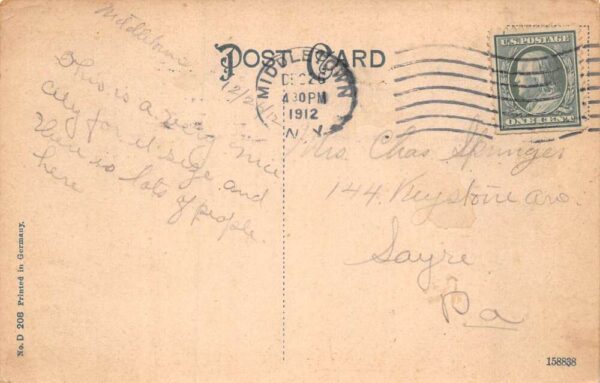 POST CARD
Middletown
12/26/12
This is a very nice
city for it size and
there is lots of people
here.
MIDDLETOWN
DEC 26
4 30 PM
1912
N.Y.
U.S. POSTAGE
ONE CENT
Mrs. Chas Springer
144 Keystone Ave.
Sayre
Pa
No. D 208 Printed in Germany.
158838